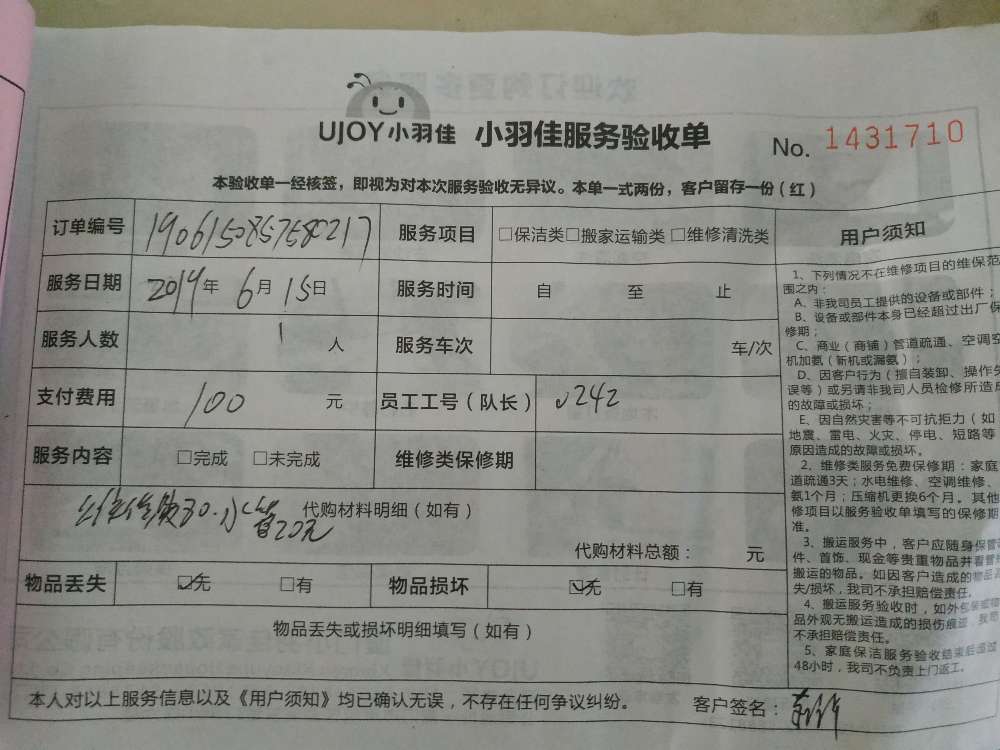 UJOY小羽佳 小羽佳服务验收单 No. 1431710
本验收单一经核签，即视为对本次服务验收无异议。本单一式两份，客户留存一份（红）
订单编号 1906150857580217 服务项目 □保洁类□搬家运输类□维修清洗类
服务日期 2019年 6月 15日 服务时间 自 至 止
服务人数 1 人 服务车次 车/次
支付费用 100 元 员工工号（队长） 0242
服务内容 □完成 □未完成 维修类保修期
80.水管20元 代购材料明细（如有）
代购材料总额： 元
物品丢失 ☑无 □有 物品损坏 ☑无 □有
物品丢失或损坏明细填写（如有）
本人对以上服务信息以及《用户须知》均已确认无误，不存在任何争议纠纷。 客户签名：
用户须知
1、下列情况不在维修项目的维保范
围之内：
A、非我司员工提供的设备或部件；
B、设备或部件本身已经超过出厂保
修期；
C、商业（商铺）管道疏通、空调空
机加氨（新机或漏氨）；
D、因客户行为（擅自装卸、操作失
误等）或另请非我司人员检修所造成
的故障或损坏；
E、因自然灾害等不可抗拒力（如
地震、雷电、火灾、停电、短路等
原因造成的故障或损坏。
2、维修类服务免费保修期：家庭
道疏通3天；水电维修、空调维修、
氨1个月；压缩机更换6个月。其他
修项目以服务验收单填写的保修期
准。
3、搬运服务中，客户应随身保管
件、首饰、现金等贵重物品并看管
搬运的物品。如因客户造成的物品
失/损坏，我司不承担赔偿责任。
4、搬运服务验收时，如外包装或
品外观无搬运造成的损伤痕迹，我司
不承担赔偿责任。
5、家庭保洁服务验收结束后超过
48小时，我司不负责上门返工。